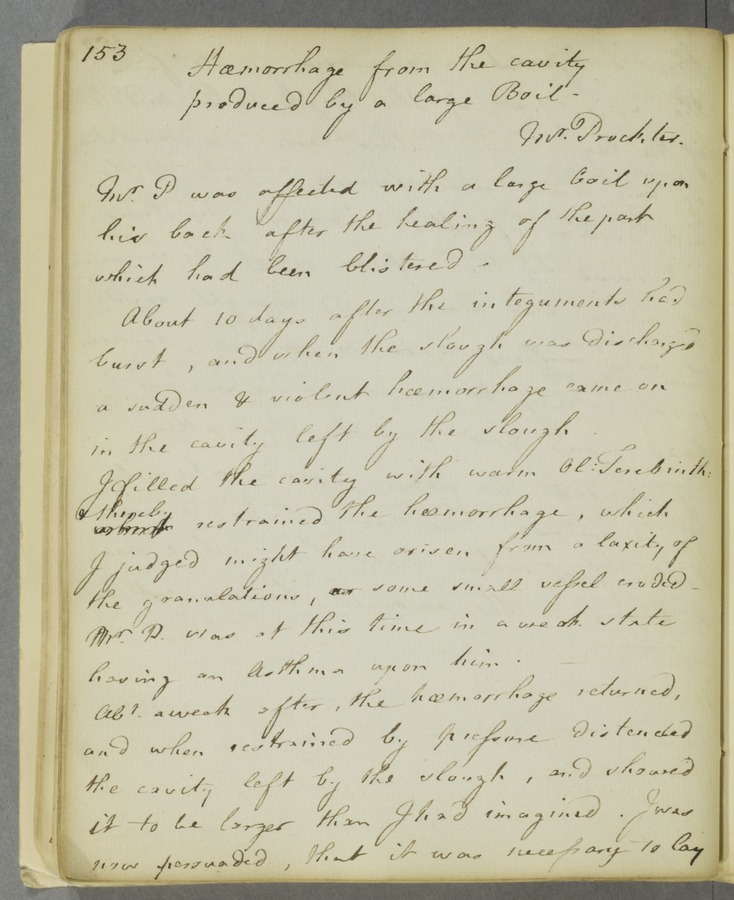 153
Hæmorrhage from the cavity
produced by a large Boil -
Mr. Prockter.
Mr. P was affected with a large boil upon
his back after the healing of the part
which had been blistered -
About 10 days after the integuments had
burst, and when the slough was discharg'd
a sudden & violent hæmorrhage came on
in the cavity left by the slough.
I filled the cavity with warm Ol: Terebinth:
& thereby
restrained the hæmorrhage, which
I judged might have arisen from a laxity of
the granulations, or some small vessel eroded -
Mr. P. was at this time in a weak state
having an Asthma upon him. -
Abt. a week after, the hæmorrhage returned,
and when restrained by pressure distended
the cavity left by the slough, and showed
it to be larger than I had imagined. I was
now persuaded, that it was necessary to lay